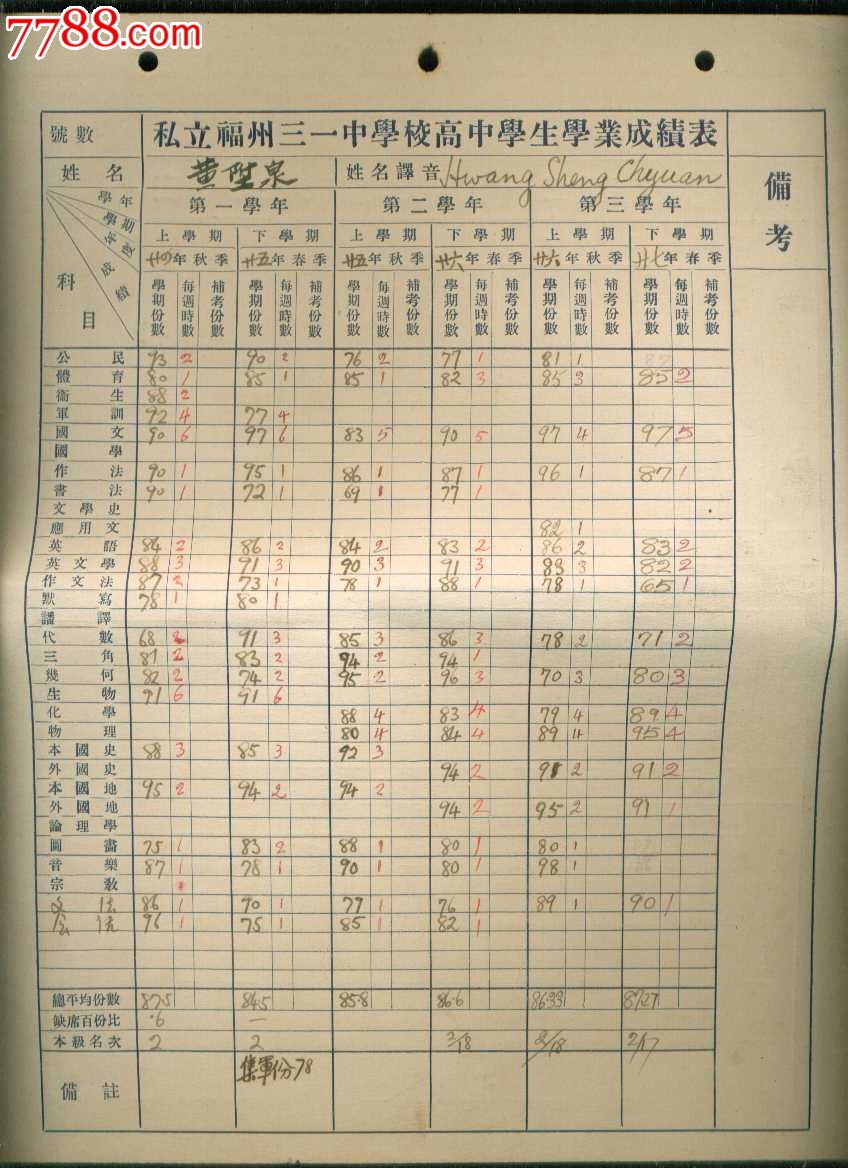 7788.com
號數 私立福州三一中學校高中學生學業成績表 備考
姓名 黃陞泉 姓名譯音 Hwang Sheng Chyuan
學年 第一學年 第二學年 第三學年
學期 上學期 下學期 上學期 下學期 上學期 下學期
年度 廿四年秋季 廿五年春季 廿五年秋季 廿六年春季 廿六年秋季 廿七年春季
成績 科目 學期份數 每週時數 補考份數 學期份數 每週時數 補考份數 學期份數 每週時數 補考份數 學期份數 每週時數 補考份數 學期份數 每週時數 補考份數 學期份數 每週時數 補考份數
公民 93 2 90 2 76 2 77 1 81 1
體育 80 1 85 1 85 1 82 3 85 3 85 2
衛生 88 2
軍訓 92 4 77 4
國文 90 6 97 6 83 5 90 5 97 4 97 5
國學
作法 90 1 95 1 86 1 87 1 96 1 87 1
書法 90 1 72 1 69 1 77 1
文學史
應用文 82 1
英語 84 2 86 2 84 2 83 2 86 2 83 2
英文學 88 3 91 3 90 3 91 3 83 3 82 2
作文法 87 2 73 1 78 1 88 1 78 1 65 1
默寫 78 1 80 1
譯
代數 68 2 91 3 85 3 86 3 78 2 71 2
三角 81 2 83 2 94 2 94 1
幾何 82 2 74 2 95 2 96 3 70 3 80 3
生物 91 6 91 6
化學 88 4 83 4 79 4 89 4
物理 80 4 84 4 89 4 95 4
本國史 88 3 85 3 92 3
外國史 94 2 91 2 91 2
本國地 95 2 94 2 94 2
外國地 94 2 95 2 91 1
論理學
圖畫 75 1 83 2 88 1 80 1 80 1
音樂 87 1 78 1 90 1 80 1 98 1
宗教
文法 86 1 90 1 77 1 76 1 89 1 90 1
96 1 75 1 85 1 82 1
總平均份數 87.5 84.5 85.8 86.6 86.33 87.27
缺席百份比 .6 —
本級名次 2 2 3/18 2/18 2/17
備註 集軍份78